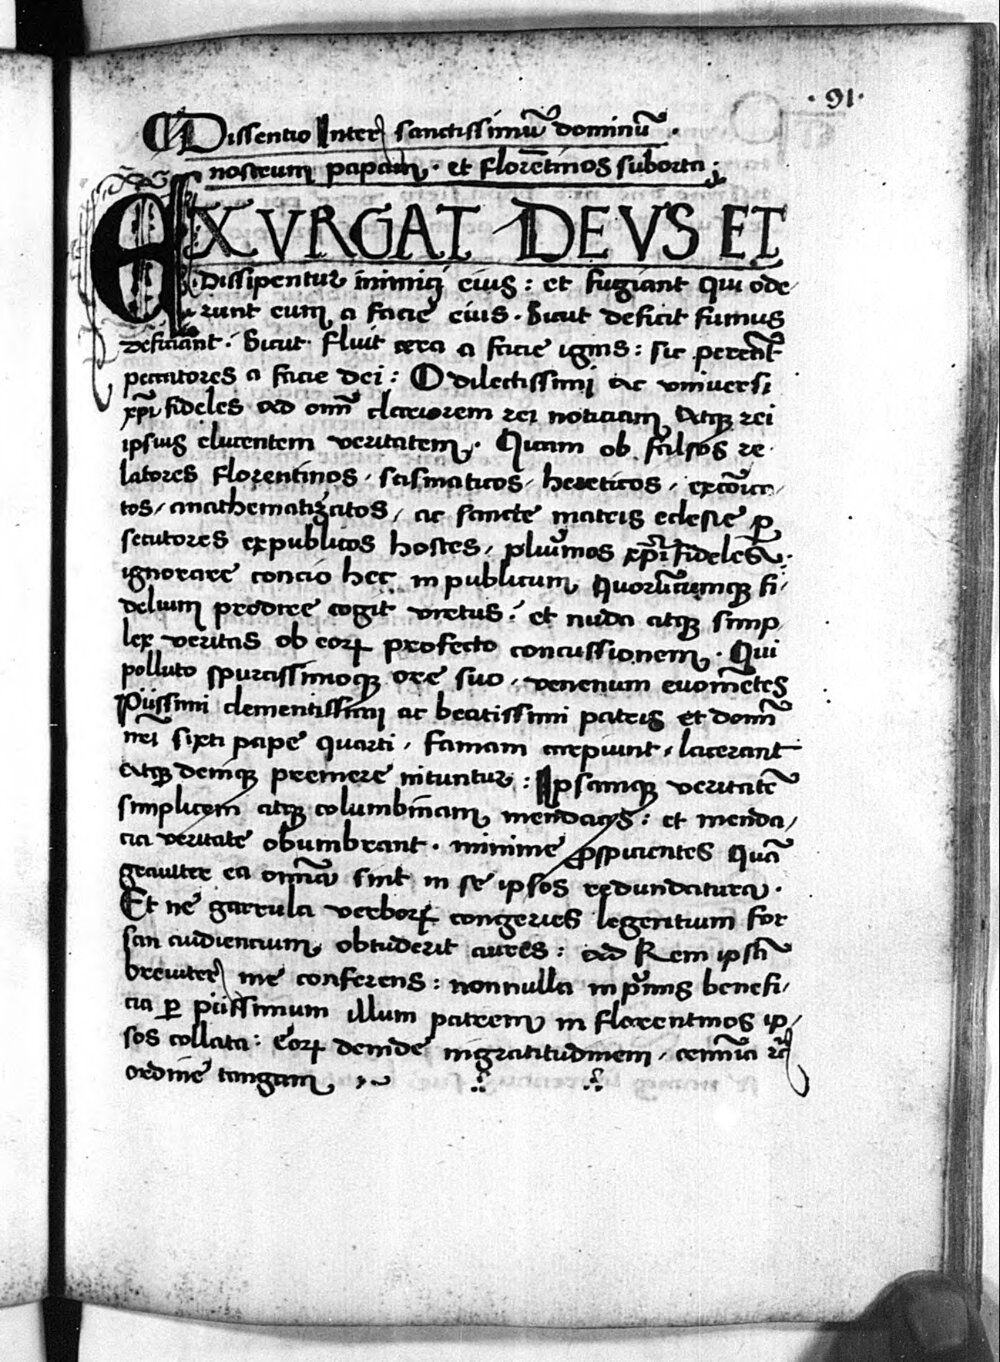 ·91·
Dissentio Inter sanctissimū dominū ·
nostrum papam · et florētinos suborta ;
EXVRGAT DEVS ET
Dissipentur inimici eius : et fugiant qui ode
runt eum a facie eius · Sicut deficit fumus
deficiant · Sicut fluit cera a facie ignis : sic pereāt
peccatores a facie dei : O dilectissimi ac vniuersi
xp̄i fideles ad om̄ clariorem rei noticiam Atqꝫ rei
ipsius elucentem veritatem · Quam ob falsos re
latores florentinos / scismaticos / hereticos / excōica/
tos / anathematizatos / ac sancte matris eclesie ꝑ
secutores expublicos hostes / plurīmos xp̄i fideles ·
ignorare concio hec in publicum Quorūcumqꝫ fi
delium prodire cogit virtus : et nuda atqꝫ simp
lex veritas ob eoꝝ profecto concussionem · Qui
polluto spurcissimoqꝫ ore suo / venenum euomētes
Piissimi clementissimi ac beatissimi patris et domī
nr̄i sixti pape quarti / famam arripiunt / lacerant
atqꝫ deniqꝫ premere nituntur : Ipsamqꝫ veritatē
simplicem atqꝫ columbinam mendacijs : et menda/
cia veritate obumbrant · minime ꝓspicientes quā
grauiter ea omnīa sint in se ipsos redundatura ·
Et ne garrula verboꝝ congeries legentium for
san audiencium obtuderit aures : ad Rem ipsā
breuiter me conferens : nonnulla in p̄mis benefi/
cia ꝑ piissimum illum patrem in florentinos ip/
sos collata : Eoꝝ deinde ingratitudinem /
ordine tangam